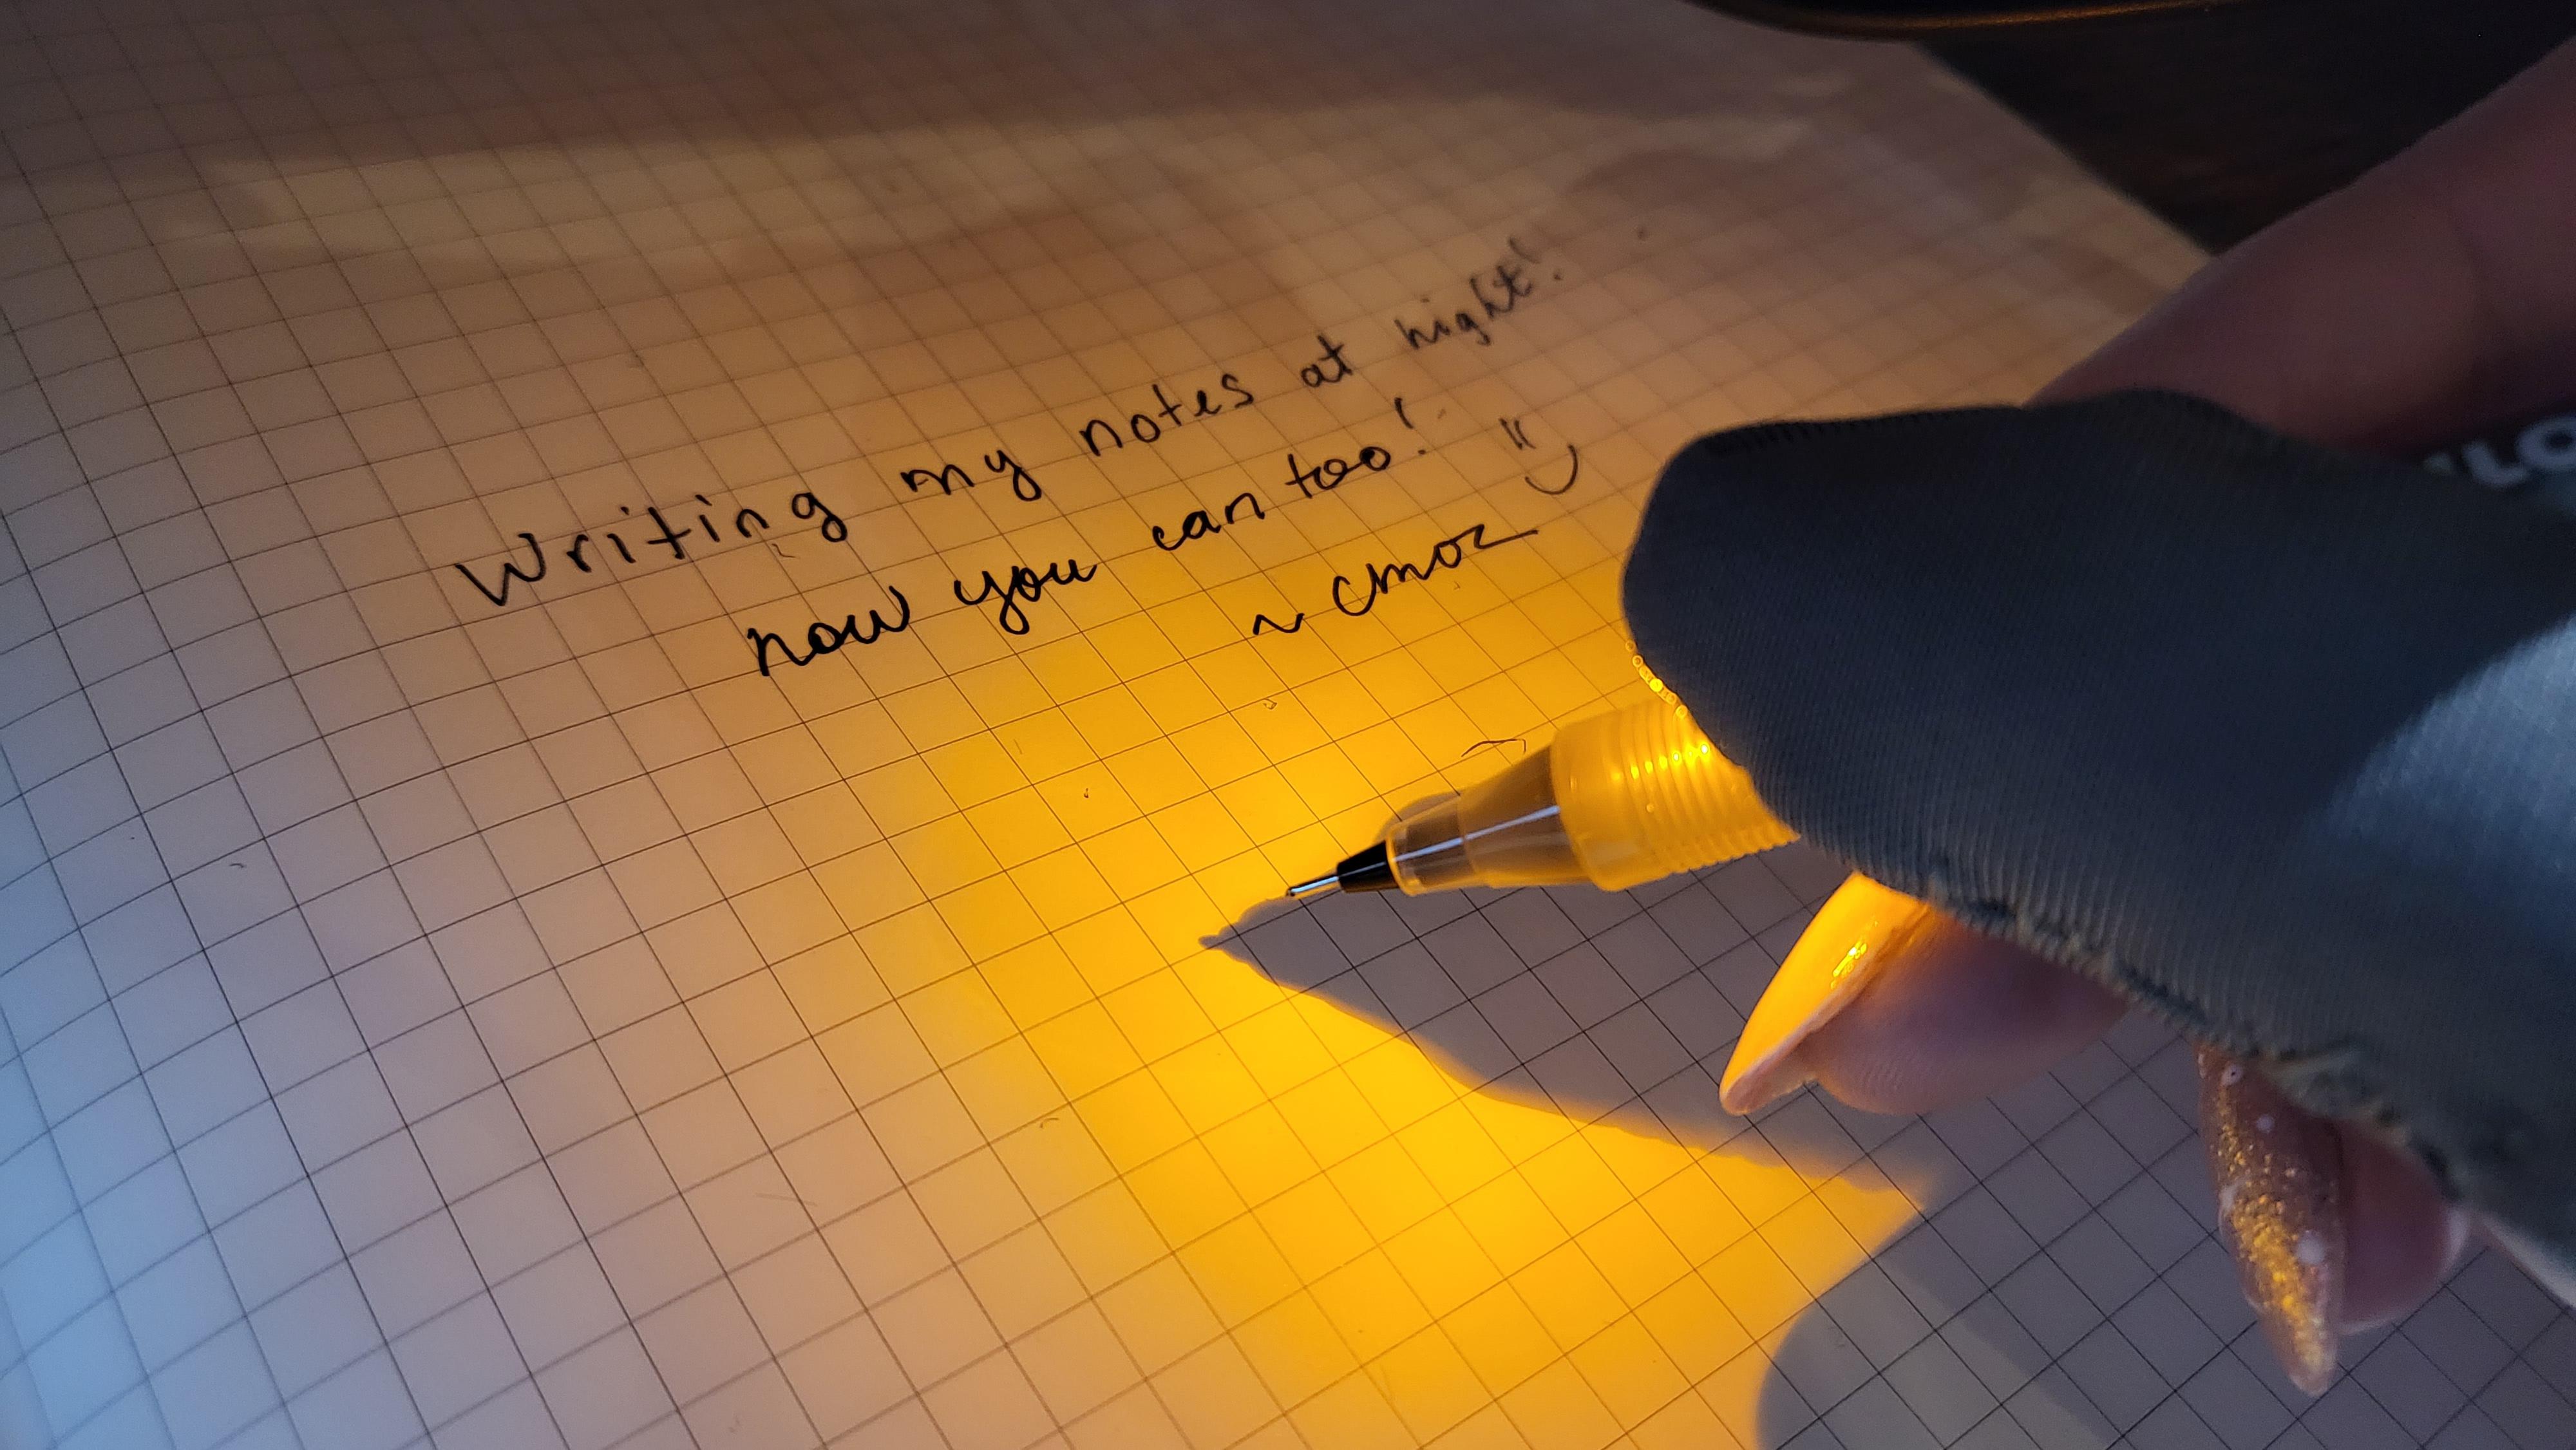 Writing my notes at night!
now you can too! ")
~ cmoz
LO